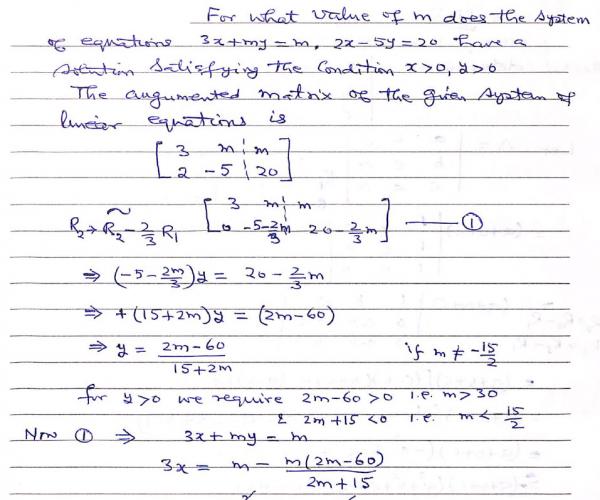 For what value of m does the system
of equations 3x+my=m, 2x-5y=20 have a
solution satisfying the condition x>0, y>0
The augumented matrix of the given system of
linear equations is
[3 m ¦ m
2 -5 ¦ 20]
R₂→ R₂-2/3 R₁ [3 m ¦ m
0 -5-2/3 m ¦ 20-2/3 m] —— ①
⇒ (-5-2m/3)y = 20-2/3 m
⇒ +(15+2m)y = (2m-60)
⇒ y = (2m-60)/(15+2m) if m ≠ -15/2
for y>0 we require 2m-60>0 i.e. m>30
& 2m+15<0 i.e. m<-15/2
Now ① ⇒ 3x+my = m
3x = m - m(2m-60)/(2m+15)